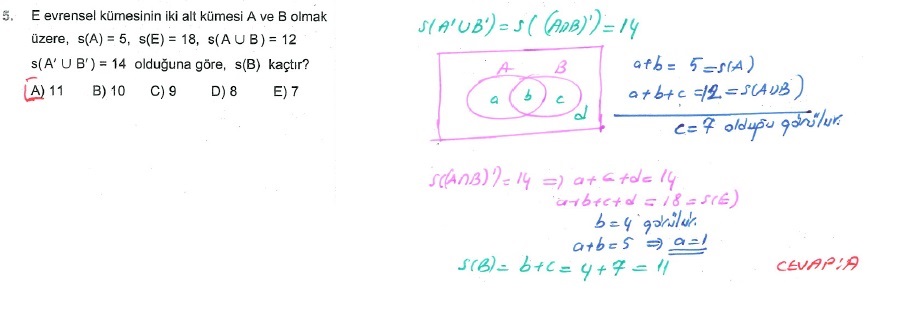 5. E evrensel kümesinin iki alt kümesi A ve B olmak
üzere, s(A) = 5, s(E) = 18, s(A ∪ B) = 12
s(A' ∪ B') = 14 olduğuna göre, s(B) kaçtır?
A) 11 B) 10 C) 9 D) 8 E) 7
s(A'∪B') = s((A∩B)') = 14
A B
a b c
d
a+b = 5 = s(A)
a+b+c = 12 = s(A∪B)
c = 7 olduğu görülür.
s((A∩B)') = 14 ⇒ a+c+d = 14
a+b+c+d = 18 = s(E)
b = 4 görülür.
a+b = 5 ⇒ a = 1
s(B) = b+c = 4+7 = 11
CEVAP: A